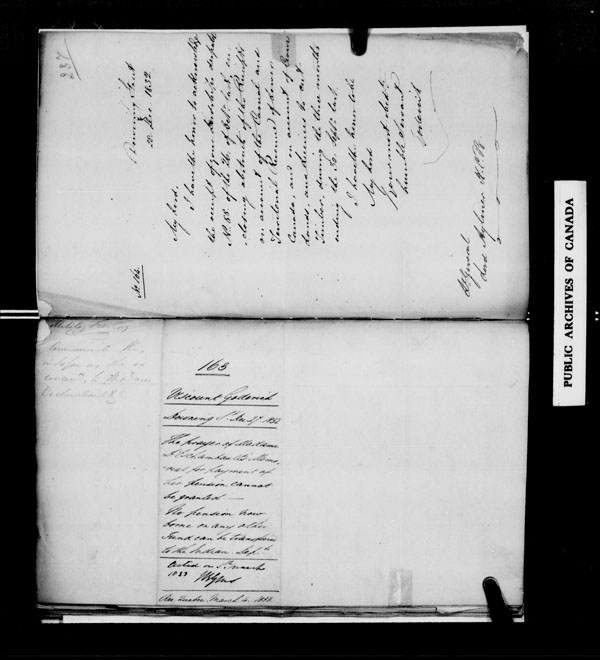 237
No. 164.
Downing Street
20. Dec. 1832.
My Lord,
I have the honor to acknowledge
the receipt of your Lordship's despatch
No. 88. of the 7th. of Octr. last, en-
closing abstracts of the Receipts
on account of the Casual and
Territorial Revenue of Lower
Canada, and on account of Crown
Lands, and Licences to cut
Timber, during the three months
ending the 30. Septr. last.
I have the honor to be
My Lord
Your most obedt.
humble Servant
Goderich
Lt. General
Lord Aylmer K.C.B.
PUBLIC ARCHIVES OF CANADA
163
Viscount Goderich
Downing St. Dec. 27. 1832
The prayer of Madame
Memo-
rial for payment of
her pension cannot
be granted —
No pension now
borne on any other
Fund can be transferred
to the Indian Dept.
Acted on 5th March
1833
Rec. Quebec March 4. 1833.